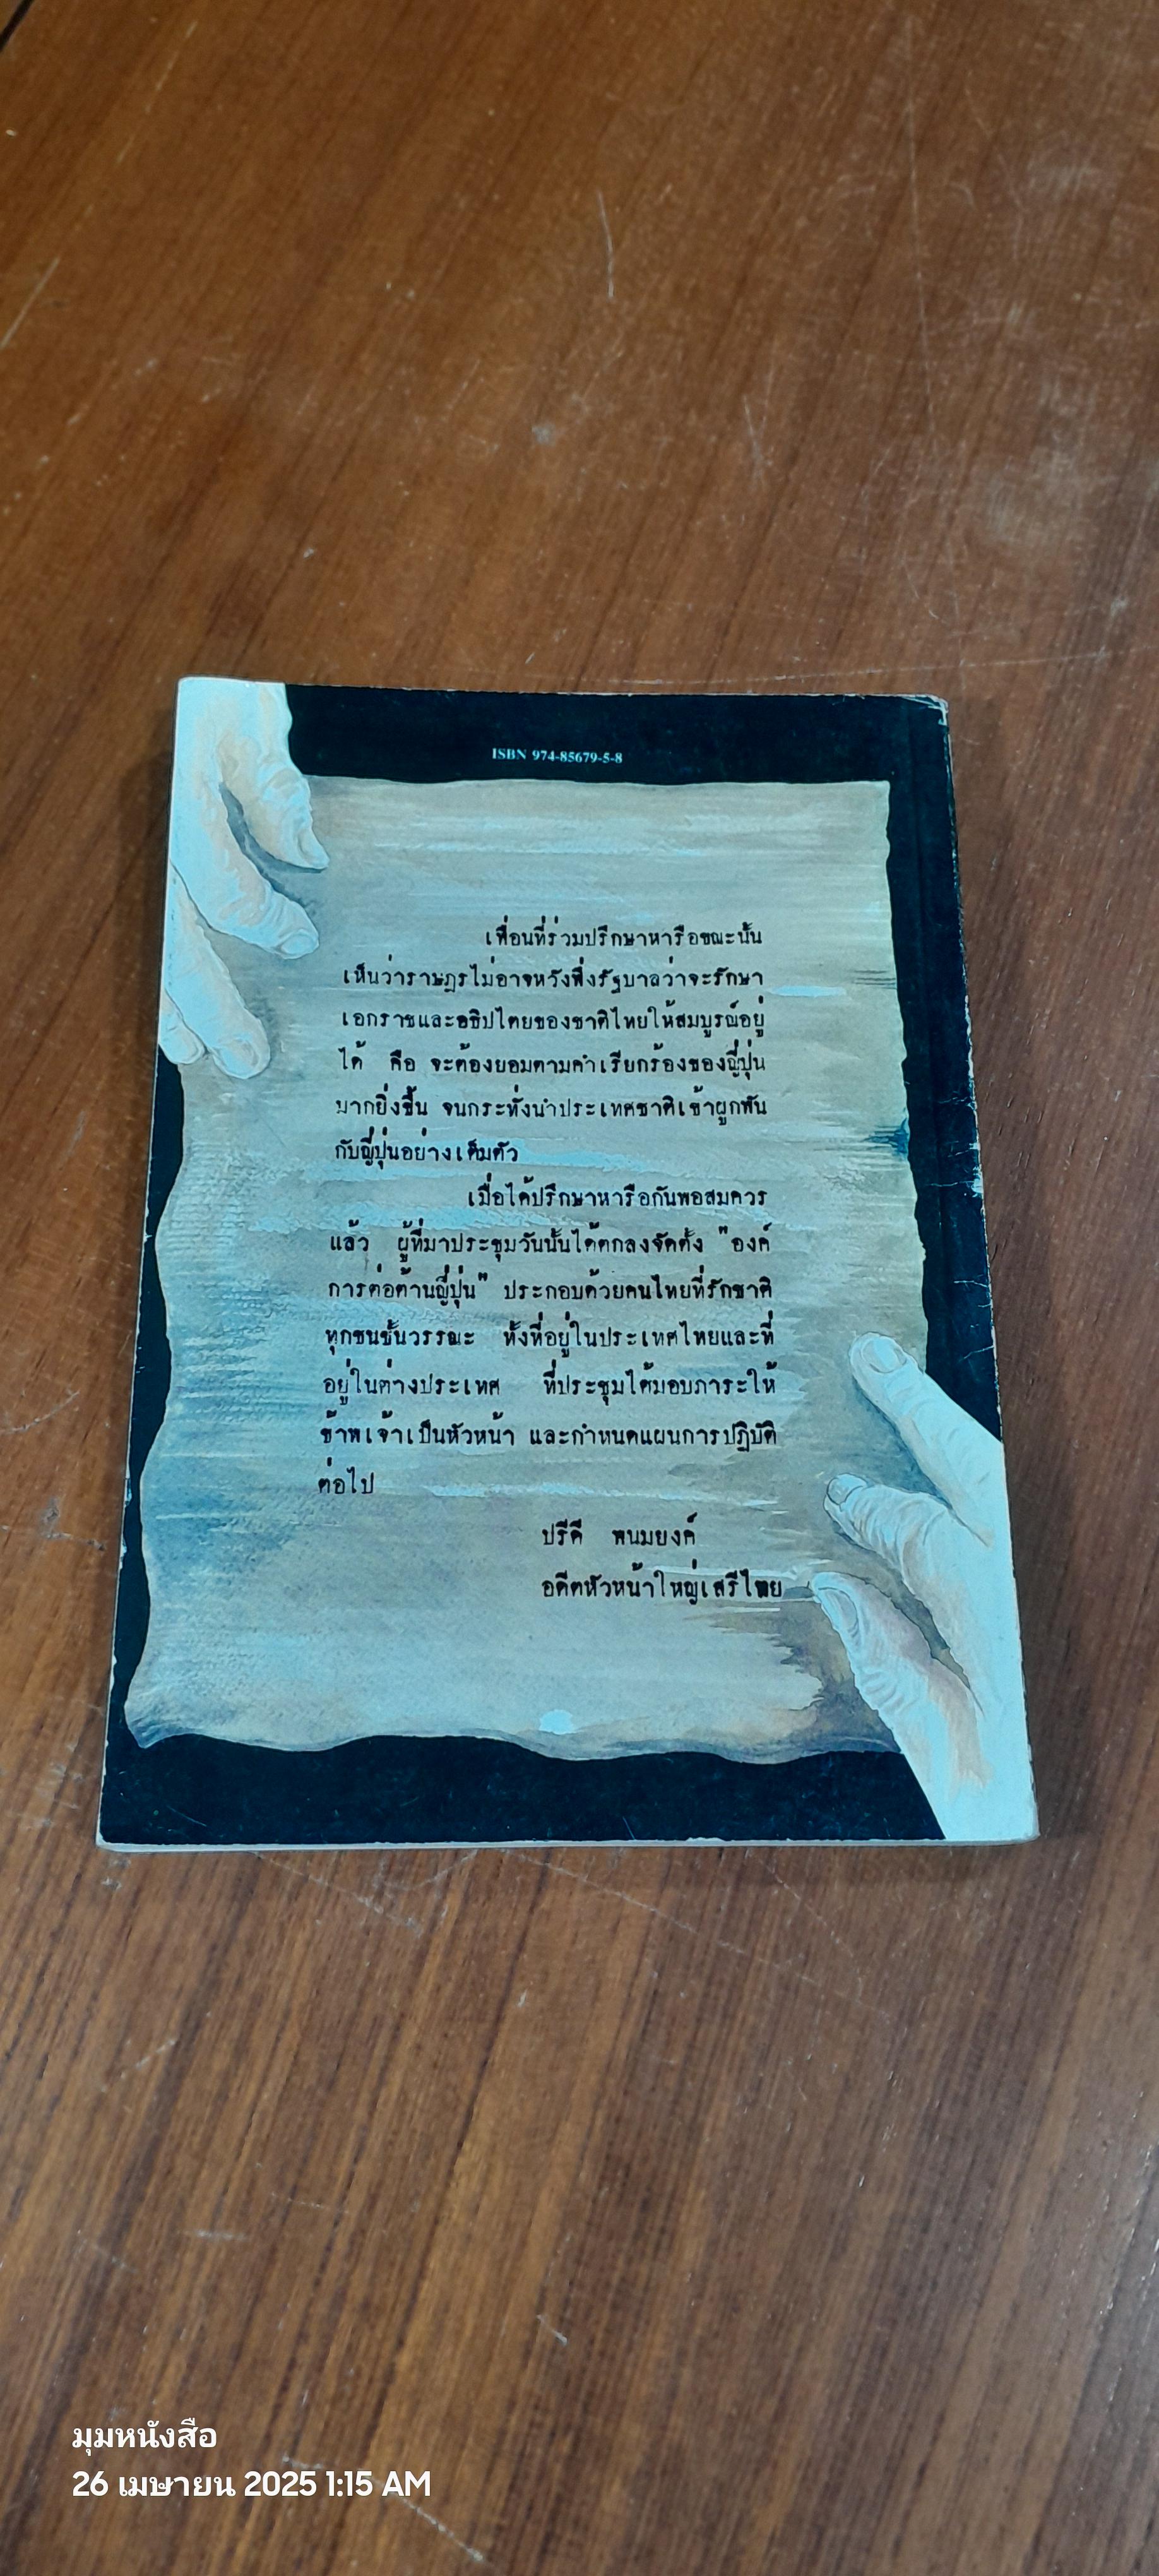 ISBN 974-85679-5-8
เพื่อนที่ร่วมปรึกษาหารือขณะนั้น
เห็นว่าราษฎรไม่อาจหวังพึ่งรัฐบาลว่าจะรักษา
เอกราชและอธิปไตยของชาติไทยให้สมบูรณ์อยู่
ได้ คือ จะต้องยอมตามคำเรียกร้องของญี่ปุ่น
มากยิ่งขึ้น จนกระทั่งนำประเทศชาติเข้าผูกพัน
กับญี่ปุ่นอย่างเต็มตัว
เมื่อได้ปรึกษาหารือกันพอสมควร
แล้ว ผู้ที่มาประชุมวันนั้นได้ตกลงจัดตั้ง "องค์
การต่อต้านญี่ปุ่น" ประกอบด้วยคนไทยที่รักชาติ
ทุกชนชั้นวรรณะ ทั้งที่อยู่ในประเทศไทยและที่
อยู่ในต่างประเทศ ที่ประชุมได้มอบภาระให้
ข้าพเจ้าเป็นหัวหน้า และกำหนดแผนการปฏิบัติ
ต่อไป
ปรีดี พนมยงค์
อดีตหัวหน้าใหญ่เสรีไทย
มุมหนังสือ
26 เมษายน 2025 1:15 AM